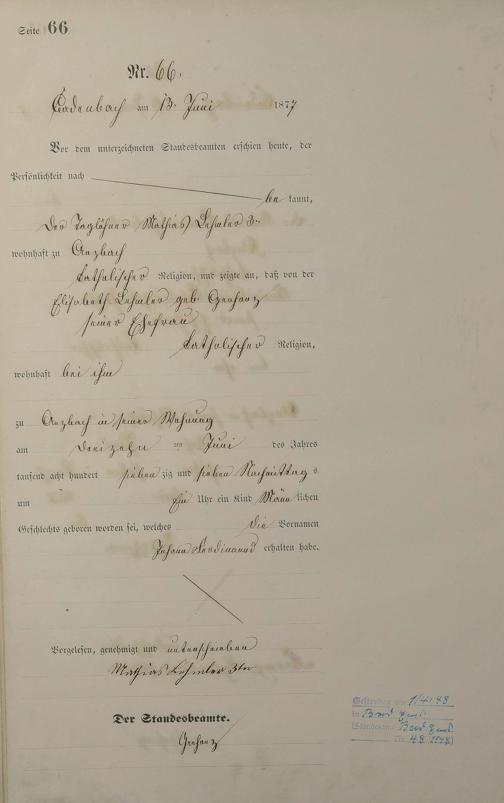 Seite 66
Nr. 66.
Cadenbach am 13. Juni 1877
Vor dem unterzeichneten Standesbeamten erschien heute, der
Persönlichkeit nach
be kannt,
der Taglöhner Mathias Lehmler 3-
wohnhaft zu Arzbach
katholischer Religion, und zeigte an, daß von der
Elisabeth Lehmler geb. Gerharz
seiner Ehefrau
katholischer Religion,
wohnhaft bei ihm
zu Arzbach in seiner Wohnung
am dreizehn ten Juni des Jahres
tausend acht hundert sieben zig und sieben Nachmittag s
um Ein Uhr ein Kind Männ lichen
Geschlechts geboren worden sei, welches die Vornamen
Johann Ferdinand erhalten habe.
Vorgelesen, genehmigt und unterschrieben
Mathias Lehmler 3ter
Der Standesbeamte.
Gerharz
1/4/48
in Bad
Nr. 48